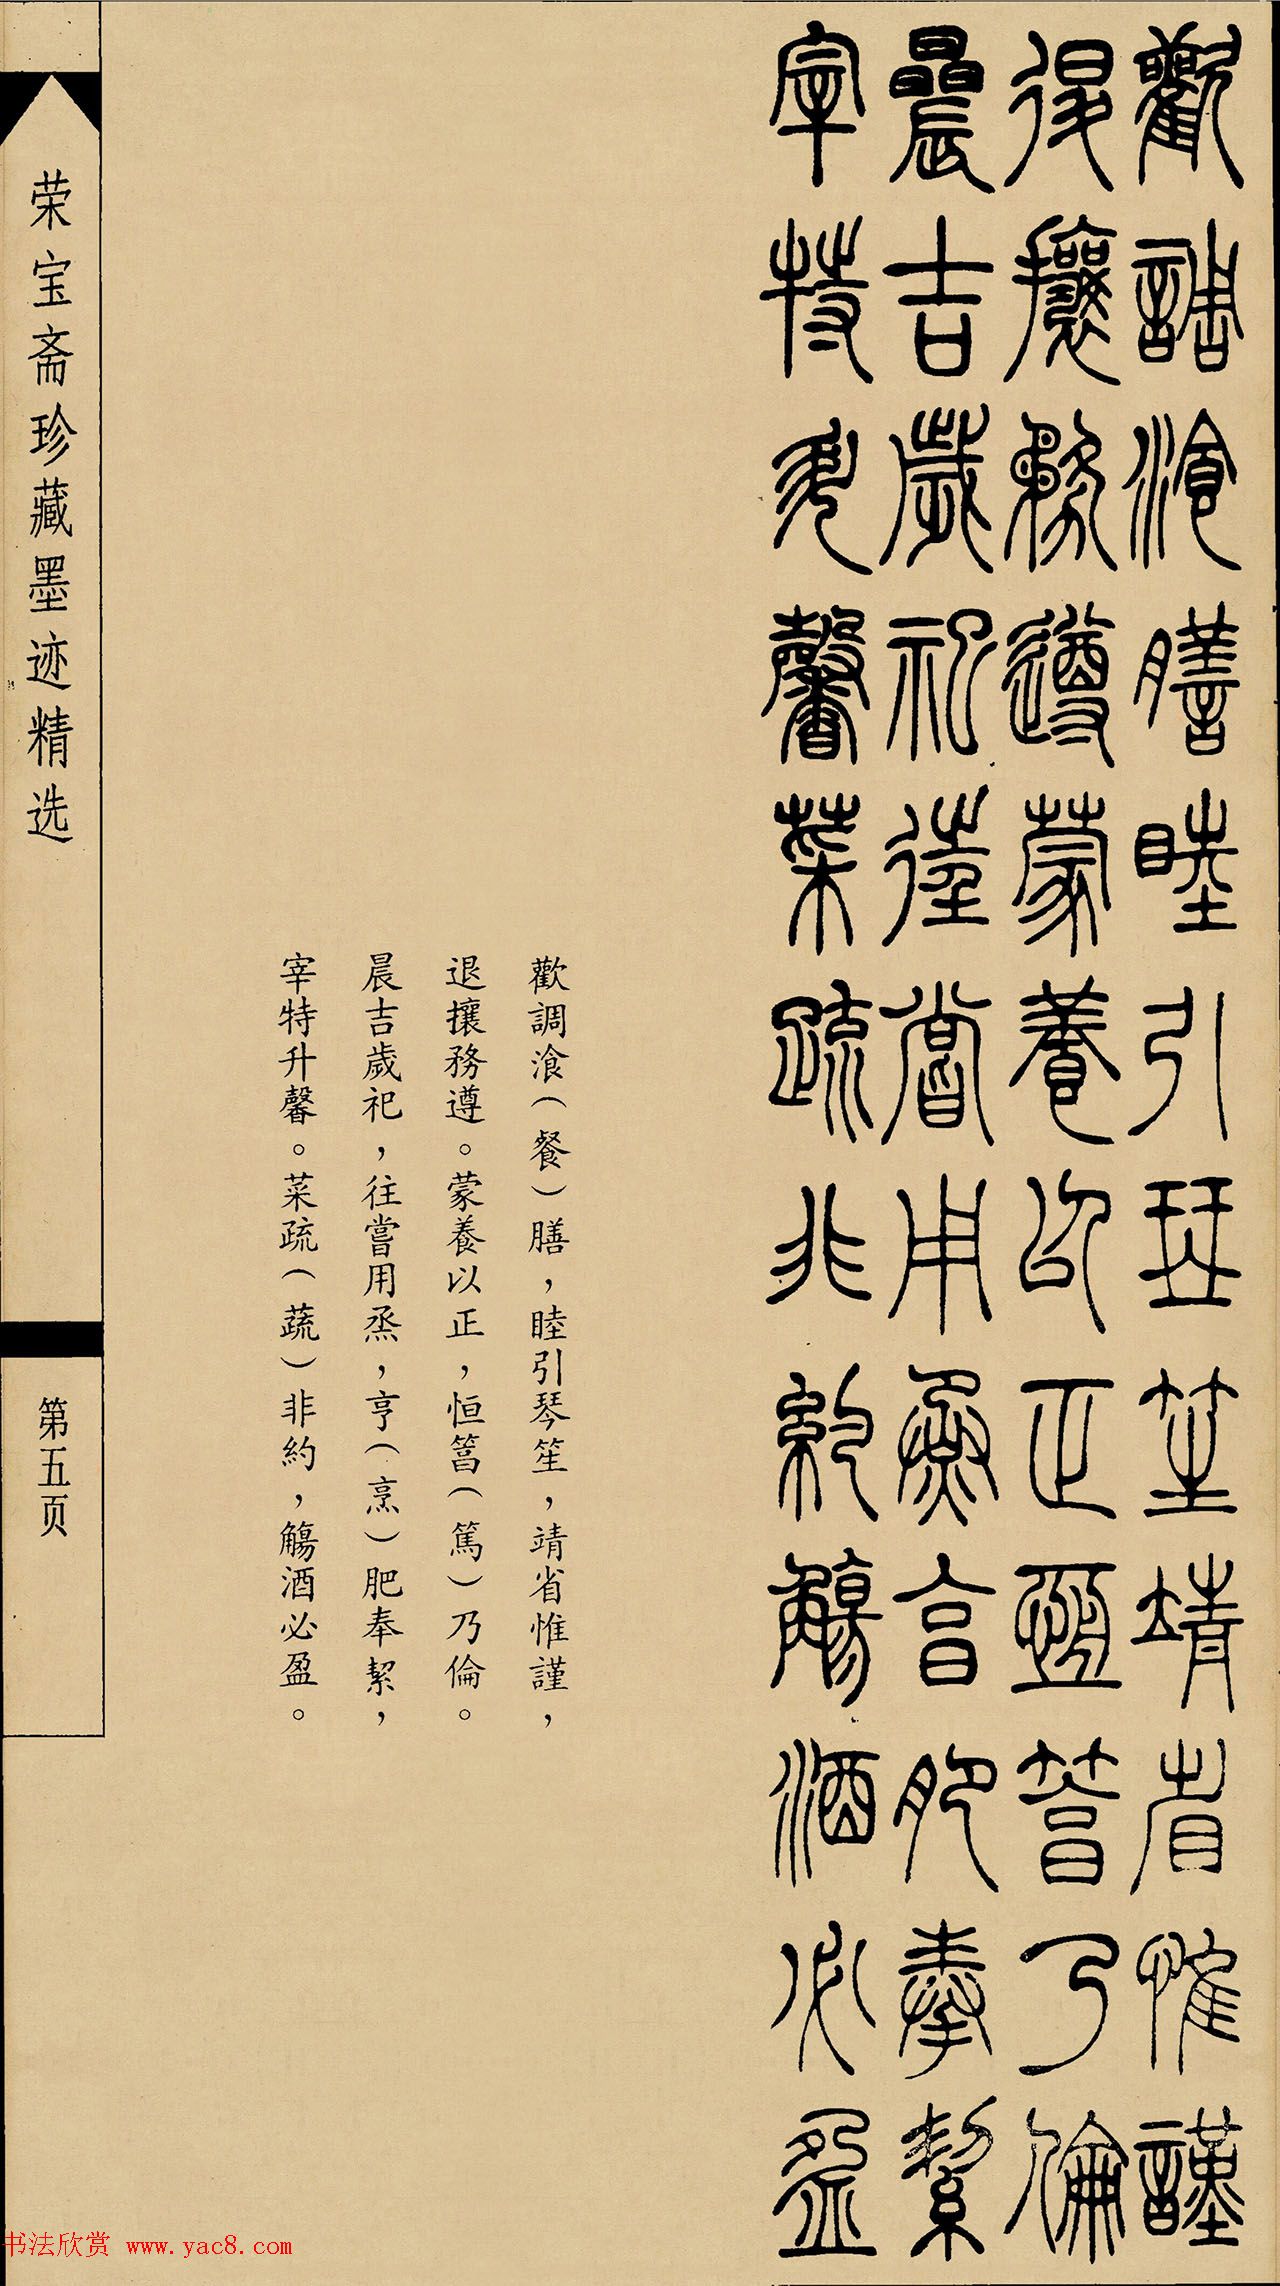 歡調飡膳睦引琴笙靖省惟謹
退攘務遵蒙養以正恒筥乃倫
晨吉歲祀往嘗用烝亯肥奉絜
宰特升馨菜疏非約觴酒必盈
歡調飡（餐）膳，睦引琴笙，靖省惟謹，
退攘務遵。蒙養以正，恒筥（篤）乃倫。
晨吉歲祀，往嘗用烝，亨（烹）肥奉絜，
宰特升馨。菜疏（蔬）非約，觴酒必盈。
荣宝斋珍藏墨迹精选
第五页
书法欣赏 www.yac8.com